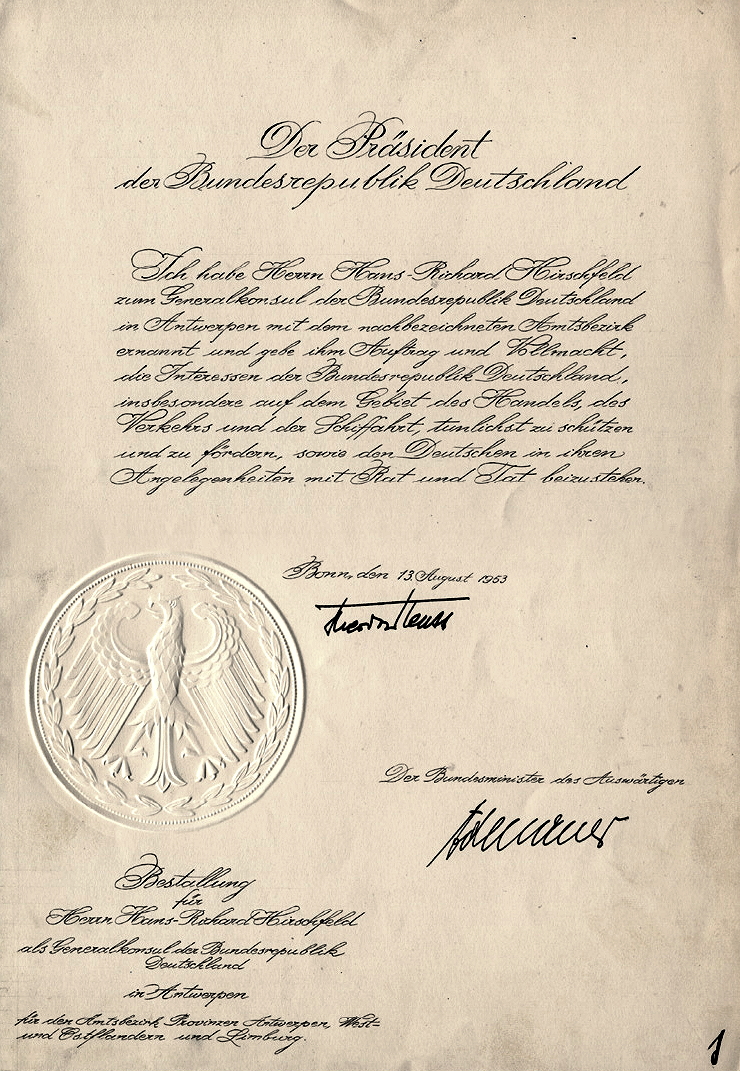 Der Präsident
der Bundesrepublik Deutschland
Ich habe Herrn Hans-Richard Hirschfeld
zum Generalkonsul der Bundesrepublik Deutschland
in Antwerpen mit dem nachbezeichneten Amtsbezirk
ernannt und gebe ihm Auftrag und Vollmacht,
die Interessen der Bundesrepublik Deutschland,
insbesondere auf dem Gebiet des Handels, des
Verkehrs und der Schiffahrt, tunlichst zu schützen
und zu fördern, sowie den Deutschen in ihren
Angelegenheiten mit Rat und Tat beizustehen.
Bonn, den 13. August 1953
Theodor Heuss
Der Bundesminister des Auswärtigen
Adenauer
Bestallung
für
Herrn Hans-Richard Hirschfeld
als Generalkonsul der Bundesrepublik
Deutschland
in Antwerpen
für den Amtsbezirk Provinzen Antwerpen, West=
und Ostflandern und Limburg.
1